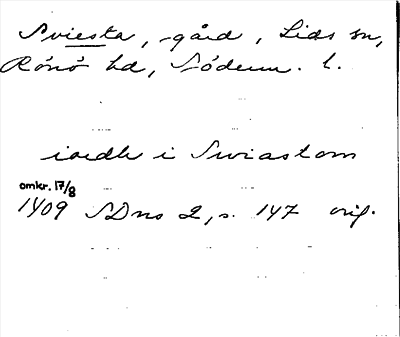 Sviesta, -gård, Lids sn,
Rönö hd, Söderm. l.
i Swiastom
omkr. 17/8
1409 SDns 2, s. 147 orig.